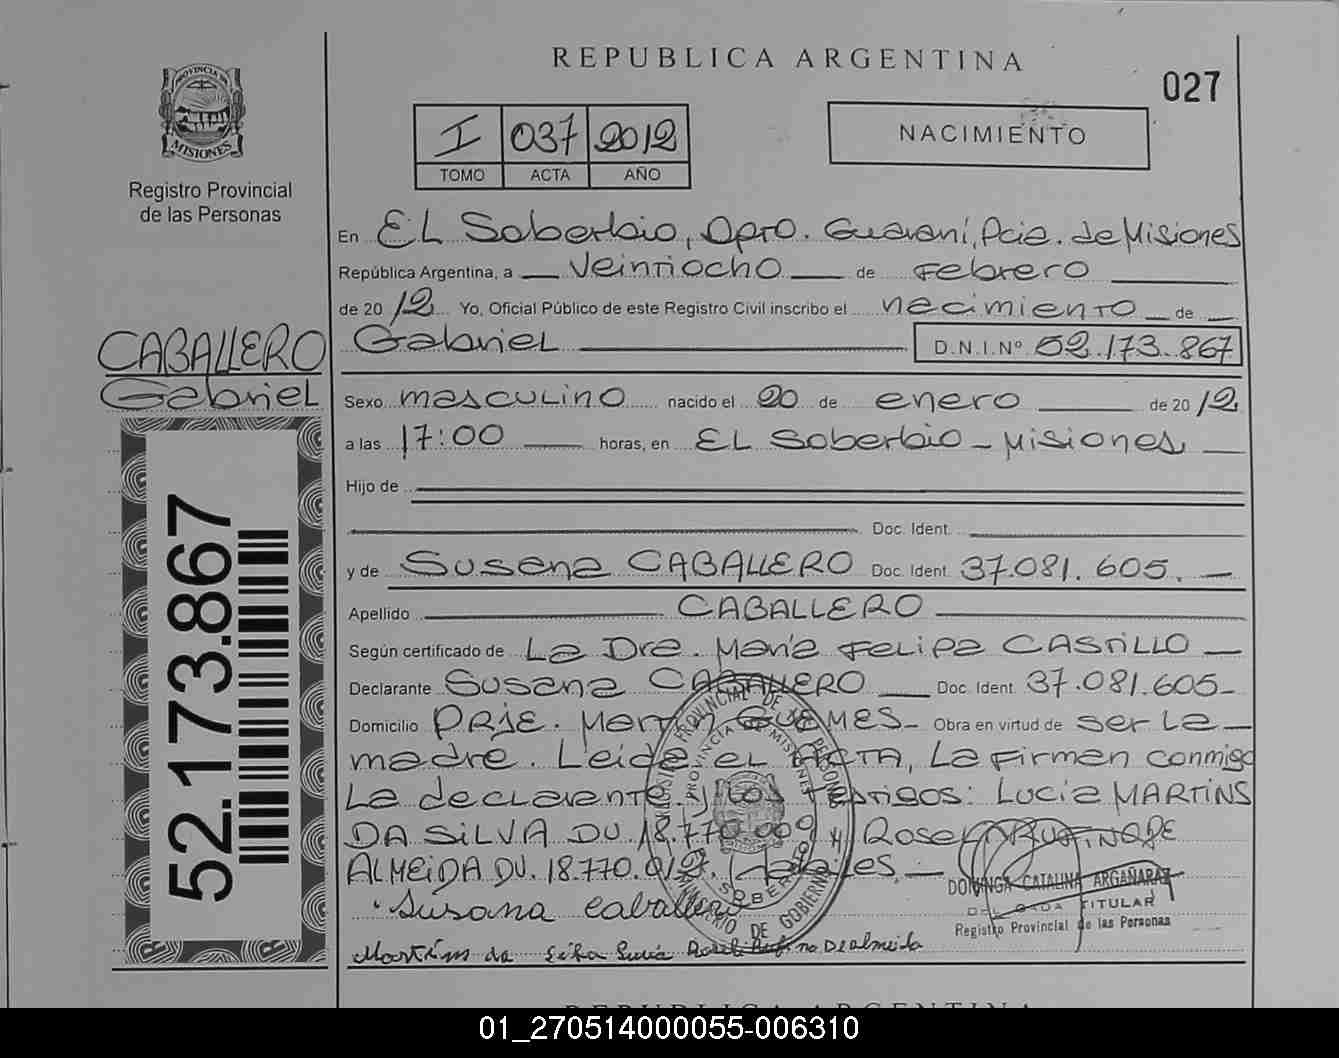 REPUBLICA ARGENTINA
027
PROVINCIA DE
MISIONES
Registro Provincial
de las Personas
I 037 2012
TOMO ACTA AÑO
NACIMIENTO
En EL Soberbio, Dpto. Guaraní, Pcia. de Misiones
República Argentina, a veintiocho de Febrero
de 2012 Yo, Oficial Público de este Registro Civil inscribo el nacimiento de
Gabriel D.N.I.Nº 52.173.867
CABALLERO
Gabriel
Sexo masculino nacido el 20 de enero de 2012
a las 17:00 horas, en EL Soberbio - Misiones
Hijo de
Doc. Ident.
y de Susana CABALLERO Doc. Ident. 37.081.605.
Apellido CABALLERO
Según certificado de La Dra. María Felipa CASTILLO
Declarante Susana CABALLERO Doc. Ident. 37.081.605
Domicilio PRJE. Martín GUEMES - Obra en virtud de ser la
madre. Leída el ACTA, La Firman conmigo
La declarante y los testigos: Lucía MARTINS
DA SILVA DU. 18.770.009 y Roseli RUFINO DE
ALMEIDA DU. 18.770.012.
Susana Caballero
Martins da Silva Lucía Roseli Rufino De almeida
REGISTRO PROVINCIAL DE LAS PERSONAS
PROVINCIA DE MISIONES
SOBERBIO
MINISTERIO DE GOBIERNO
DOMINGA CATALINA ARGAÑARAZ
DELEGADA TITULAR
Registro Provincial de las Personas
52.173.867
REPUBLICA ARGENTINA
01_270514000055-006310